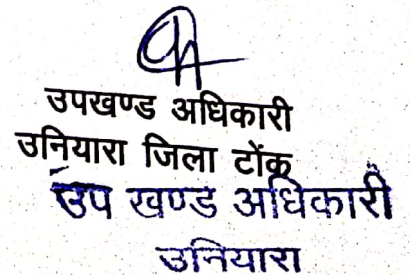 उपखण्ड अधिकारी
उनियारा जिला टोंक
उप खण्ड अधिकारी
उनियारा